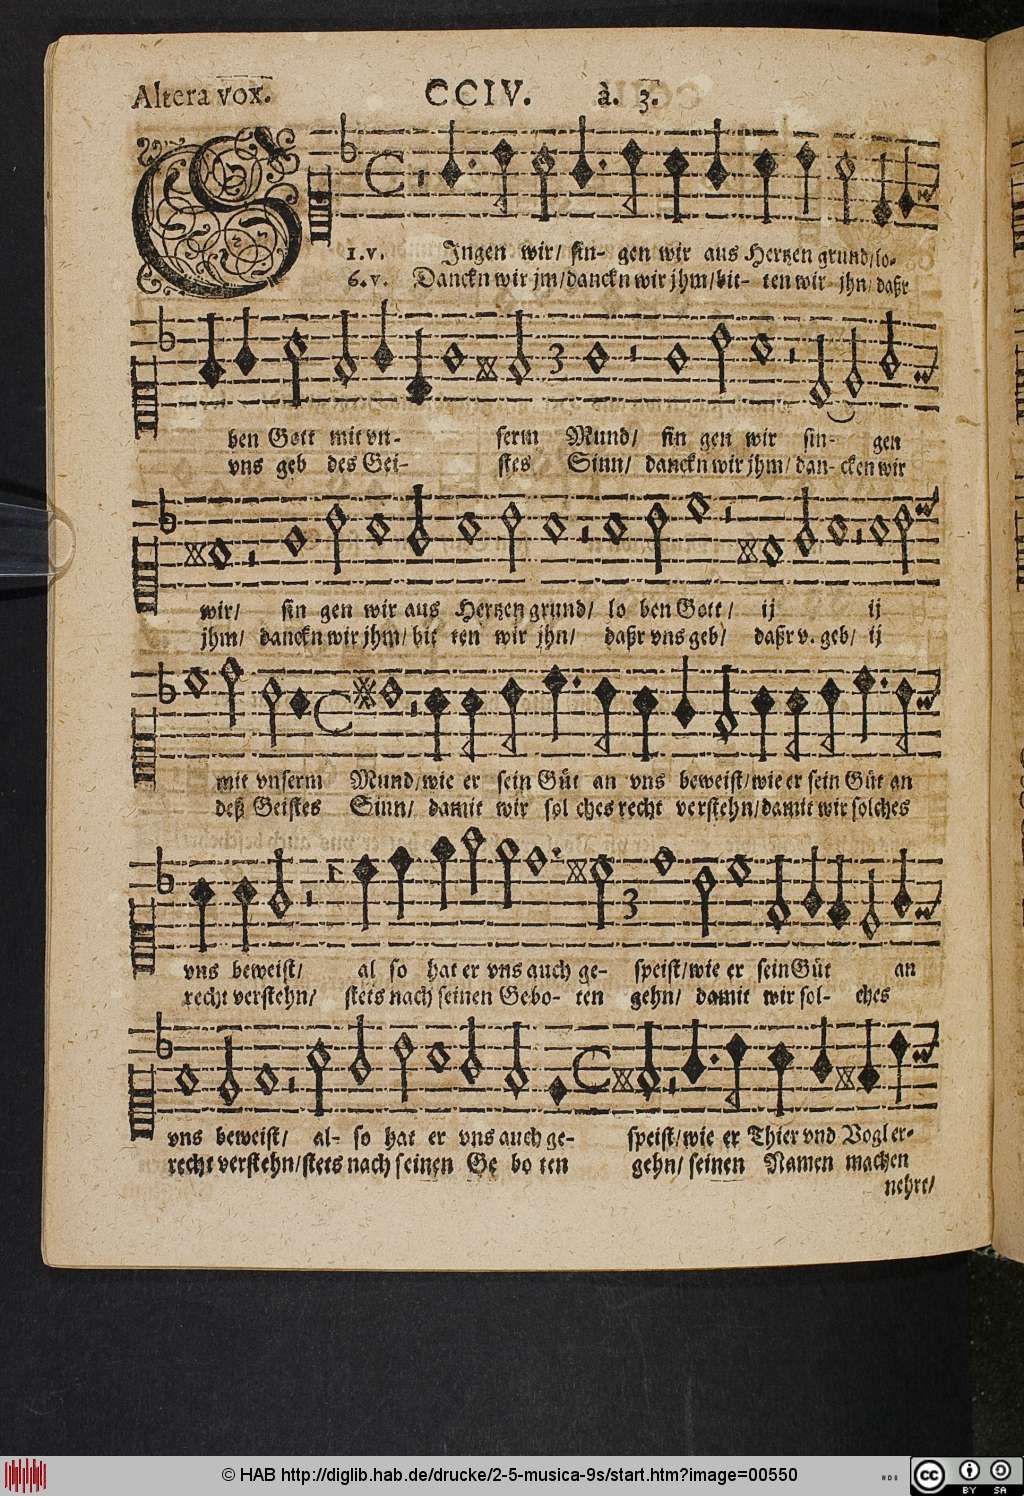 Altera vox. CCIV. à. 3.
1.v. SJngen wir/ sin- gen wir aus Hertzen grund/lo-
6.v. Danckn wir jm/danckn wir jhm/bit- ten wir jhn/ daßr
ben Gott mit vn- serm Mund/ sin gen wir sin- gen
vns geb des Gei- stes Sinn/ danckn wir jhm/ dan- cken wir
wir/ sin gen wir aus Hertzen grund/ lo ben Gott/ ij ij
jhm/ danckn wir jhm/ bit ten wir jhn/ daßr vns geb/ daßr v. geb/ ij
mit vnserm Mund/wie er sein Güt an vns beweist/wie er sein Güt an
deß Geistes Sinn/ damit wir sol ches recht verstehn/damit wir solches
vns beweist/ al so hat er vns auch ge- speist/wie er sein Güt an
recht verstehn/ stets nach seinen Gebo- ten gehn/ damit wir sol- ches
vns beweist/ al- so hat er vns auch ge- speist/wie er Thier vnd Vogl er-
recht verstehn/stets nach seinen Ge bo ten gehn/ seinen Namen machen
nehrt/
© HAB http://diglib.hab.de/drucke/2-5-musica-9s/start.htm?image=00550
cc BY SA